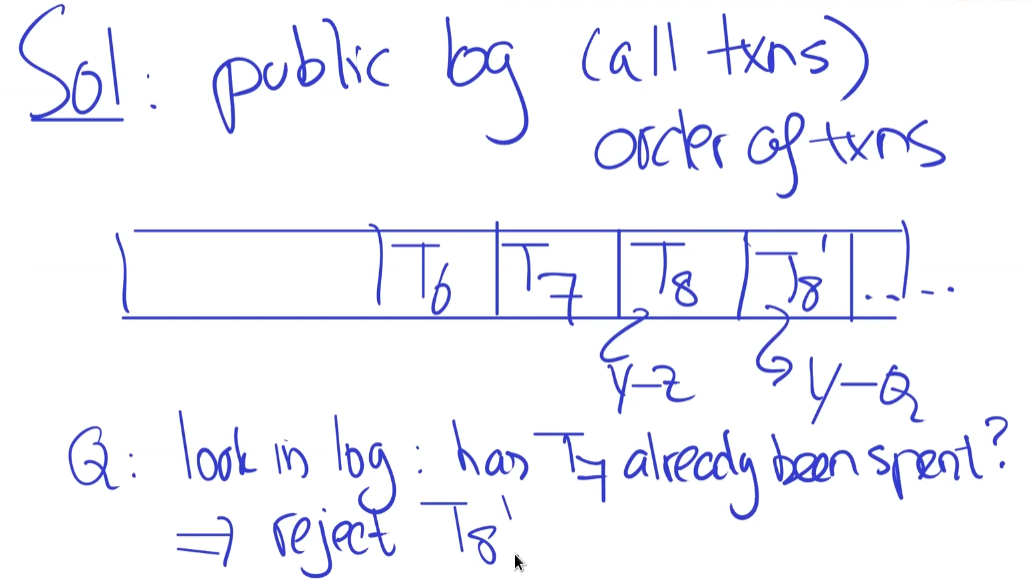 Sol: public log (all txns)
order of txns
T6 T7 T8 T8' ...
Y-Z Y-Q
Q: look in log: has T7 already been spent?
⇒ reject T8'